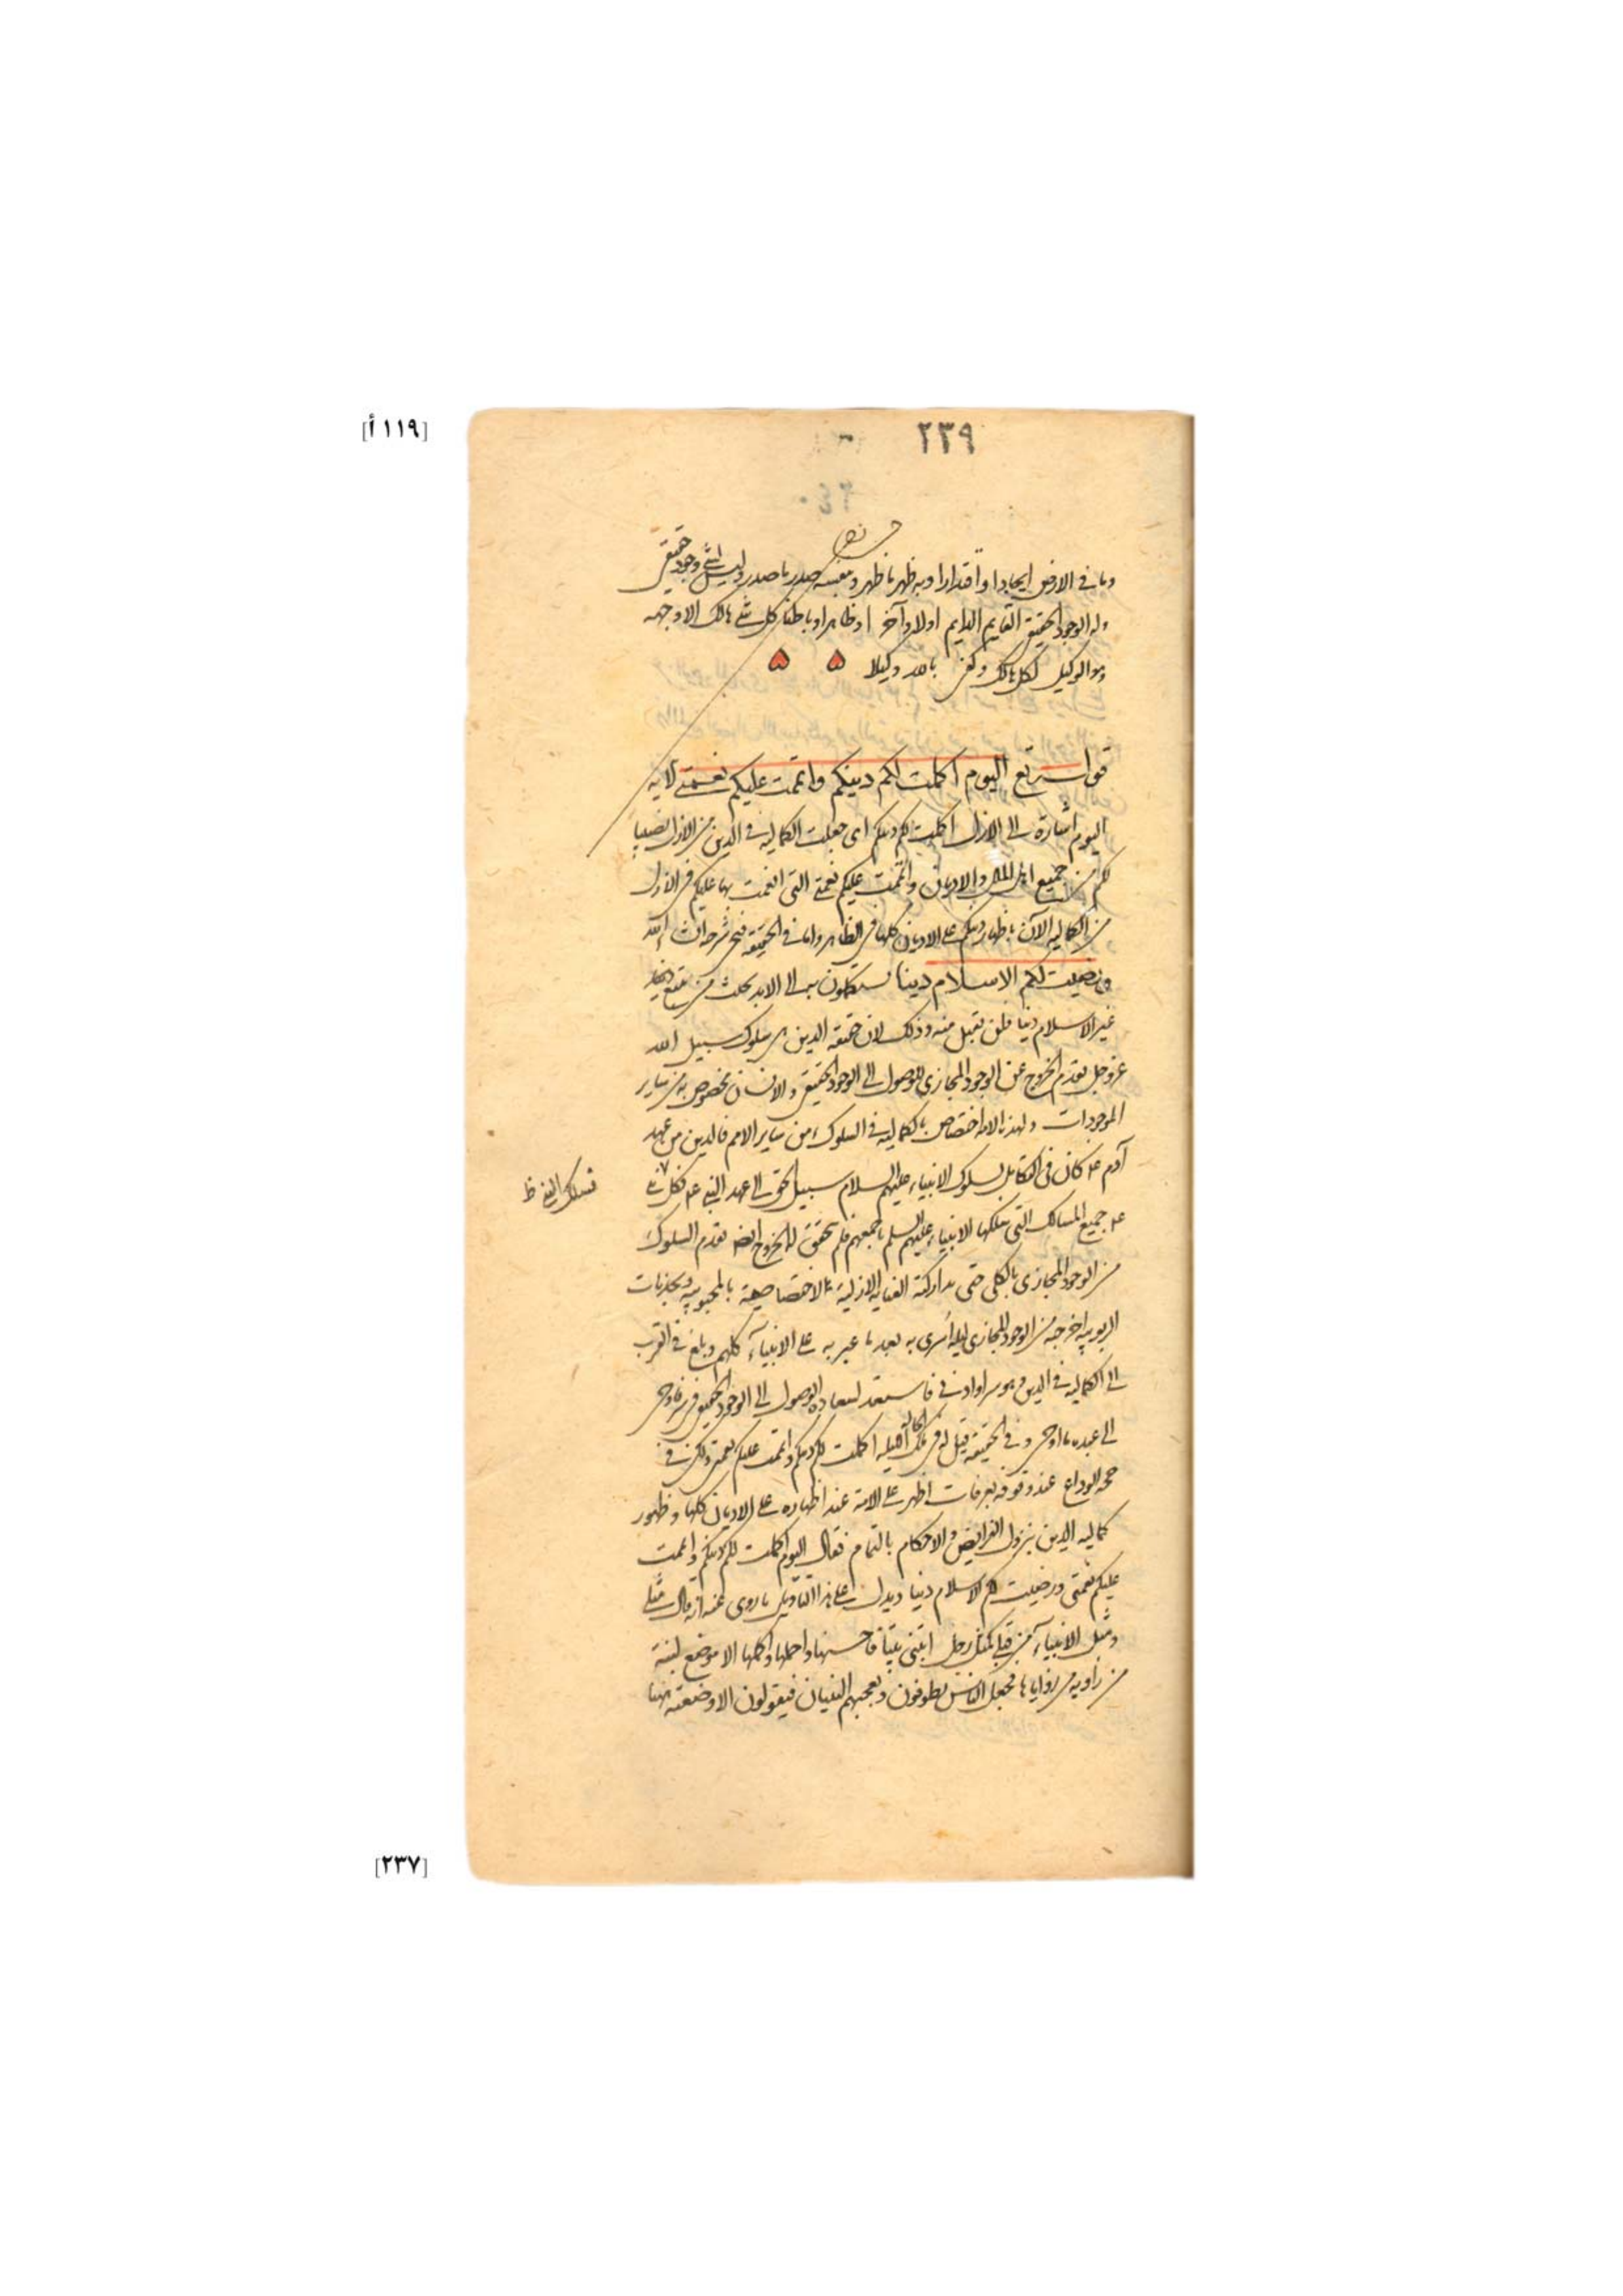 [١١٩ أ]
٢٣٩
وما في الارض ايجادا واقتدارا وبه ظهر ما ظهر وبنفسه صدر ما صدر وليس لشئ وجود حقيقي
وله الوجود الحقيقي القايم الدايم اولا وآخرا وظاهرا وباطنا كل شئ هالك الا وجهه
وهو الوكيل لكل هالك وكفى بالله وكيلا
قوله تع اليوم اكملت لكم دينكم واتممت عليكم نعمتي الاية
اليوم اشارة الى الازل اكملت لكم دينكم اى جعلت الكمالية في الدين من الازل نصيبا
لكم من جميع اهل الملل والاديان واتممت عليكم نعمتي التى انعمت بها عليكم في الازل
من الكمالية الآن باظهار دينكم على الاديان كلها في الظاهر واما في الحقيقة شرحه ان شاء الله
ورضيت لكم الاسلام دينا تستكملون به الى الابد بحيث من يبتغ
غير الاسلام دينا فلن يقبل منه وذلك لان حقيقة الدين هى سلوك سبيل الله
عز وجل بقدم الخروج عن الوجود المجازى للوصول الى الوجود الحقيقي والانسان مخصوص به من ساير
الموجودات ولهذه الامة اختصاص بالكمالية في السلوك من ساير الامم فالدين من عهد
آدم عم كان في التكامل بسلوك الانبياء عليهم السلام سبيل الحق الى عهد النبي عم
عم جميع المسالك التى سلكها الانبياء عليهم السلم باجمعهم فلم يتحقق له الخروج ايضا بقدم السلوك
من الوجود المجازى بالكلى حتى تداركته العناية الازلية الاختصاصية بالمحبوبية وبجذبات
الربوبية اخرجته من الوجود المجازى ليلة اسرى به بعد ما عبر به على الانبياء كلهم وبلغ في القرب
الى الكمالية في الدين وهو سر او ادنى فاستعد لسعادة الوصول الى الوجود الحقيقي في سر فاوحى
الى عبده ما اوحى وفي الحقيقة قيل له في تلك الليلة اكملت لكم دينكم واتممت عليكم نعمتي ولكن في
حجة الوداع عند وقوفه بعرفات اظهر على الامة عند اظهاره على الاديان كلها وظهور
كمالية الدين بنزول الفرايض والاحكام بالتمام فقال اليوم اكملت لكم دينكم واتممت
عليكم نعمتي ورضيت لكم الاسلام دينا ويدل على هذا التاويل ما روى عنه انه قال مثلى
ومثل الانبياء من قبلى كمثل رجل ابتنى بيتا فاحسنها واجملها واكملها الا موضع لبنة
من زاوية من زواياها فجعل الناس يطوفون ويعجبهم البنيان فيقولون الا وضعت ههنا
[٢٣٧]